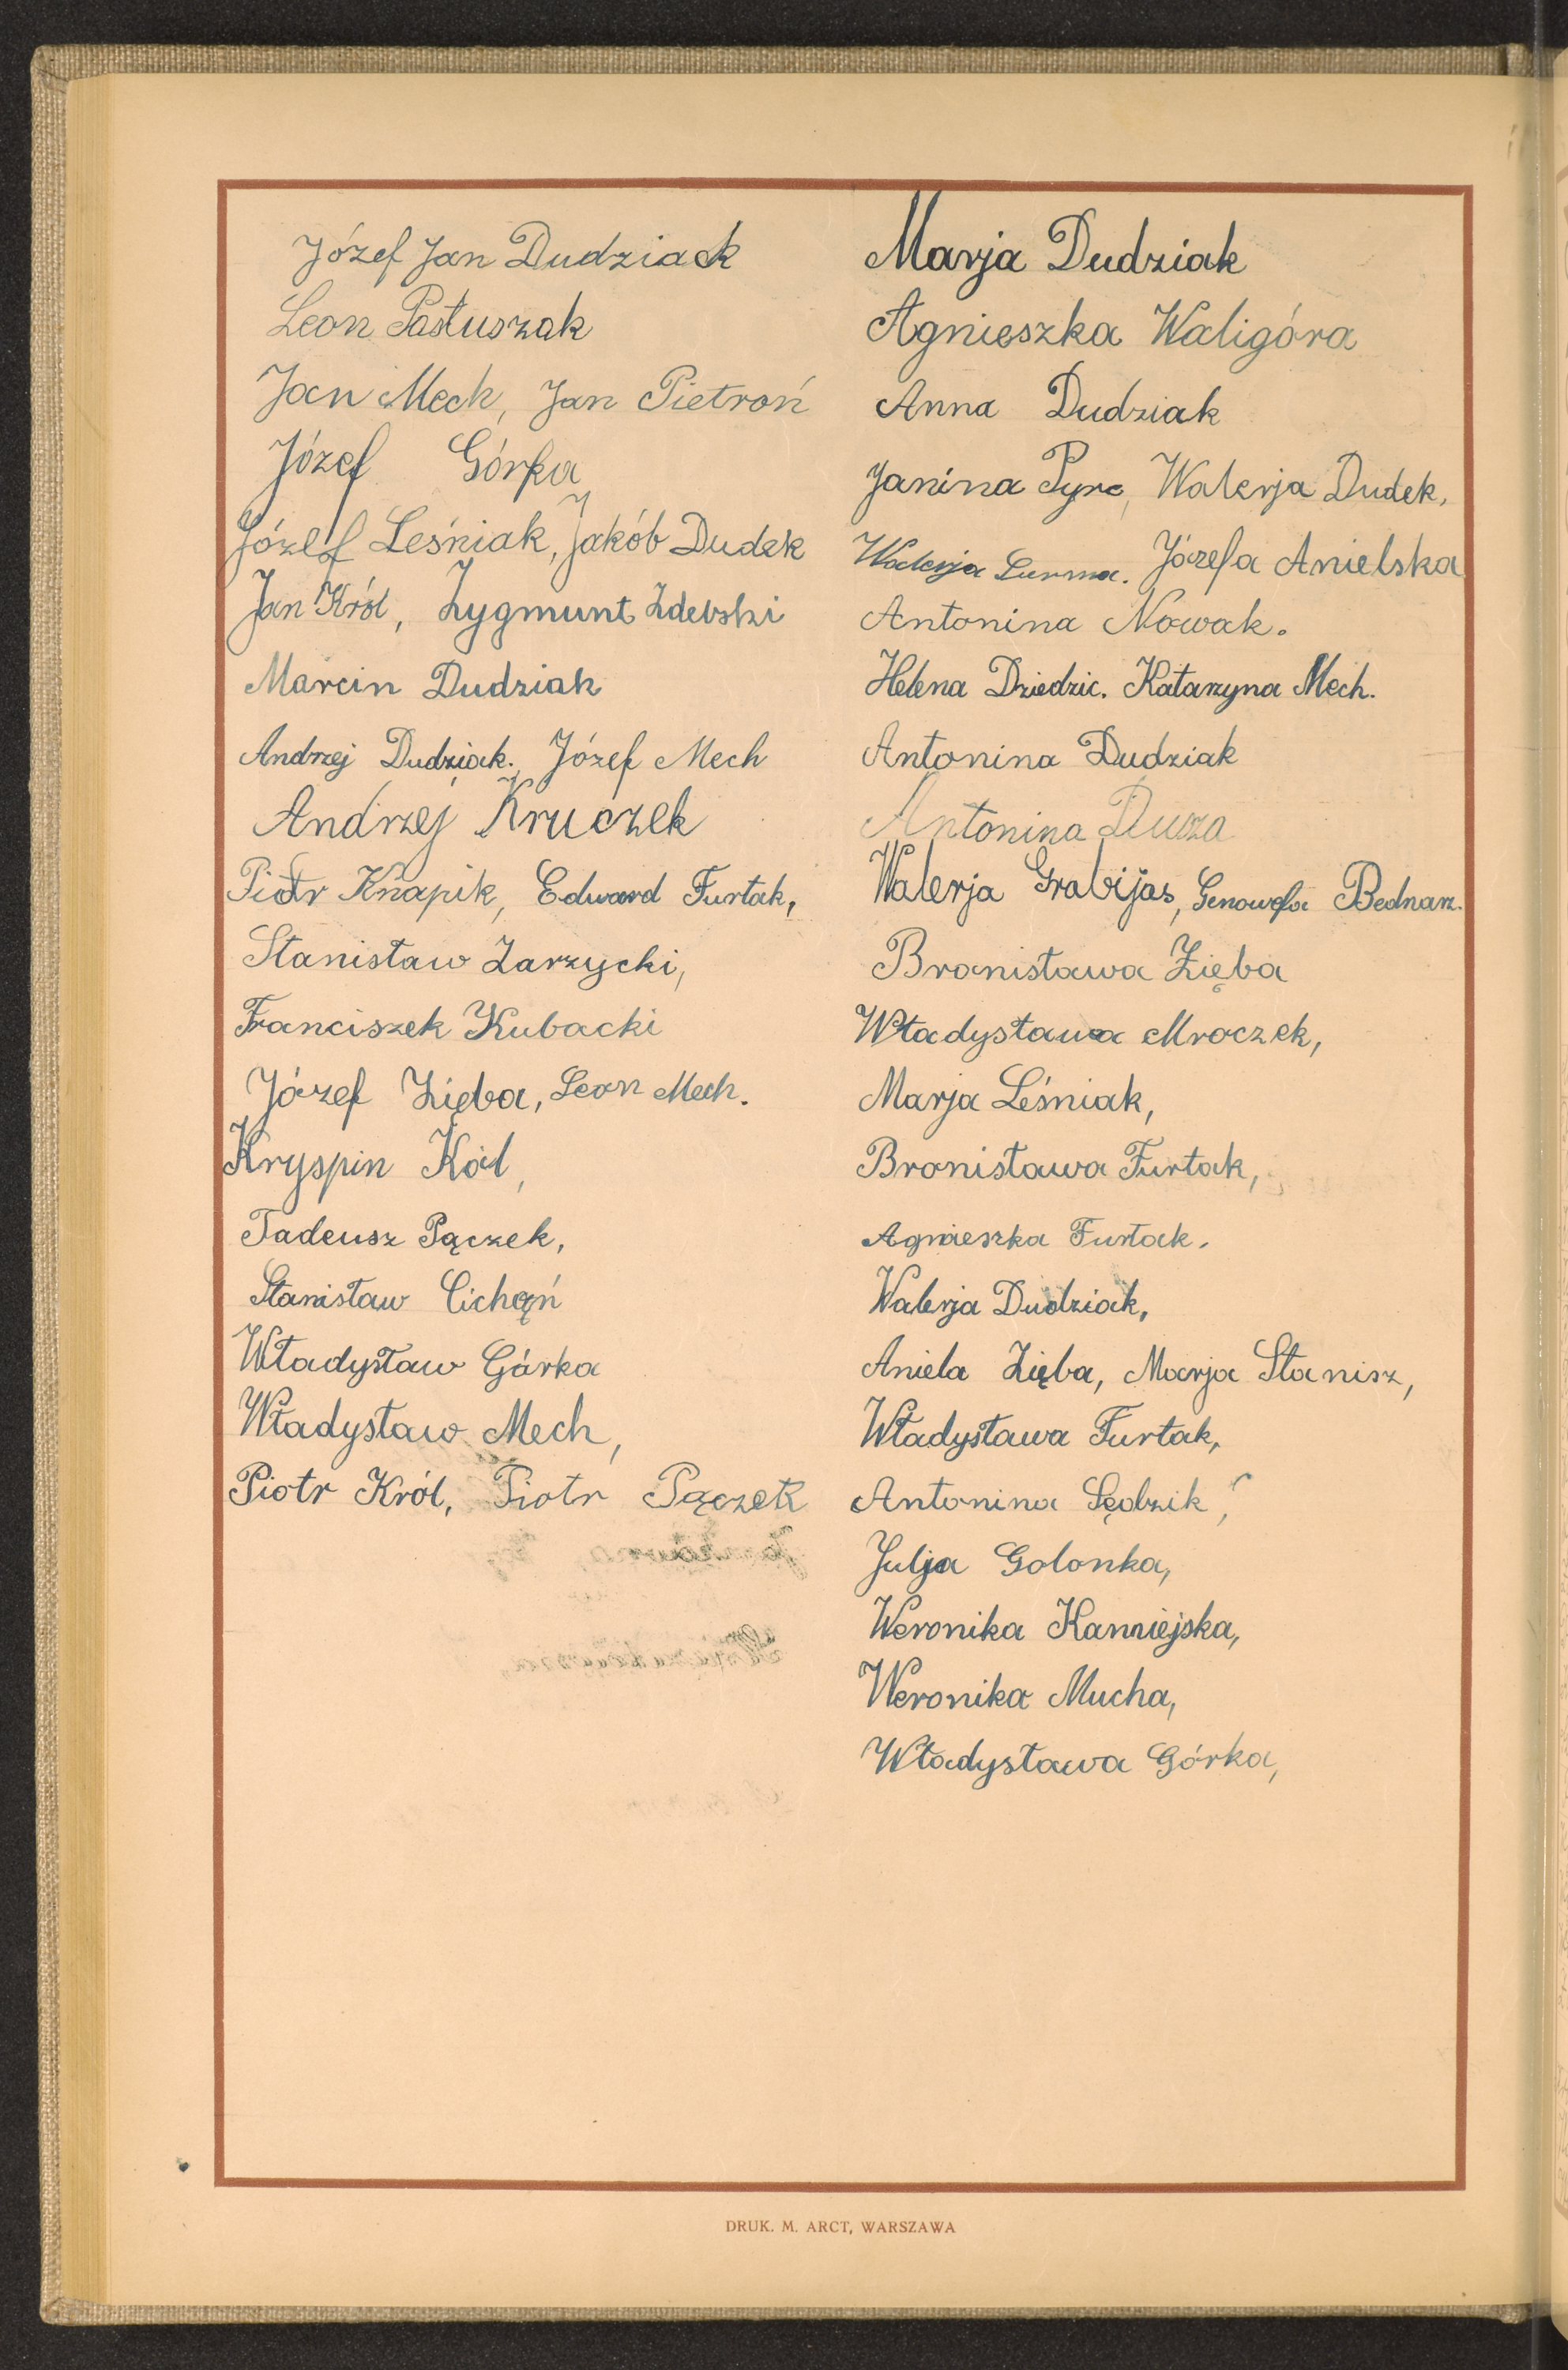 Józef Jan Dudziack
Leon Pastuszak
Jan Mech, Jan Pietroń
Józef Górka
Józef Leśniak, Jakób Dudek
Jan Król, Zygmunt Zdebski
Marcin Dudziak
Andrzej Dudziak. Józef Mech
Andrzej Kruczek
Piotr Knapik, Edward Furtak,
Stanisław Zarzycki,
Franciszek Kubacki
Józef Zięba, Leon Mech.
Kryspin Kól,
Tadeusz Pączek,
Stanisław Cichoń
Władysław Górka
Władysław Mech,
Piotr Król, Piotr Pączek
Marja Dudziak
Agnieszka Waligóra
Anna Dudziak
Janina Pyrc, Walerja Dudek,
Walerja Surma. Józefa Anielska
Antonina Nowak.
Helena Dziedzic. Katarzyna Mech.
Antonina Dudziak
Antonina
Walerja Grabijas, Genowefa Bednarz.
Bronisława Zięba
Władysława Mroczek,
Marja Leśniak,
Bronisława Furtak,
Agnieszka Furtak.
Walerja Dudziak,
Aniela Zięba, Marja Stanisz,
Władysława Furtak,
Antonina Sędzik,
Julja Golonka,
Weronika
Weronika Mucha,
Władysława Górka,
DRUK. M. ARCT, WARSZAWA